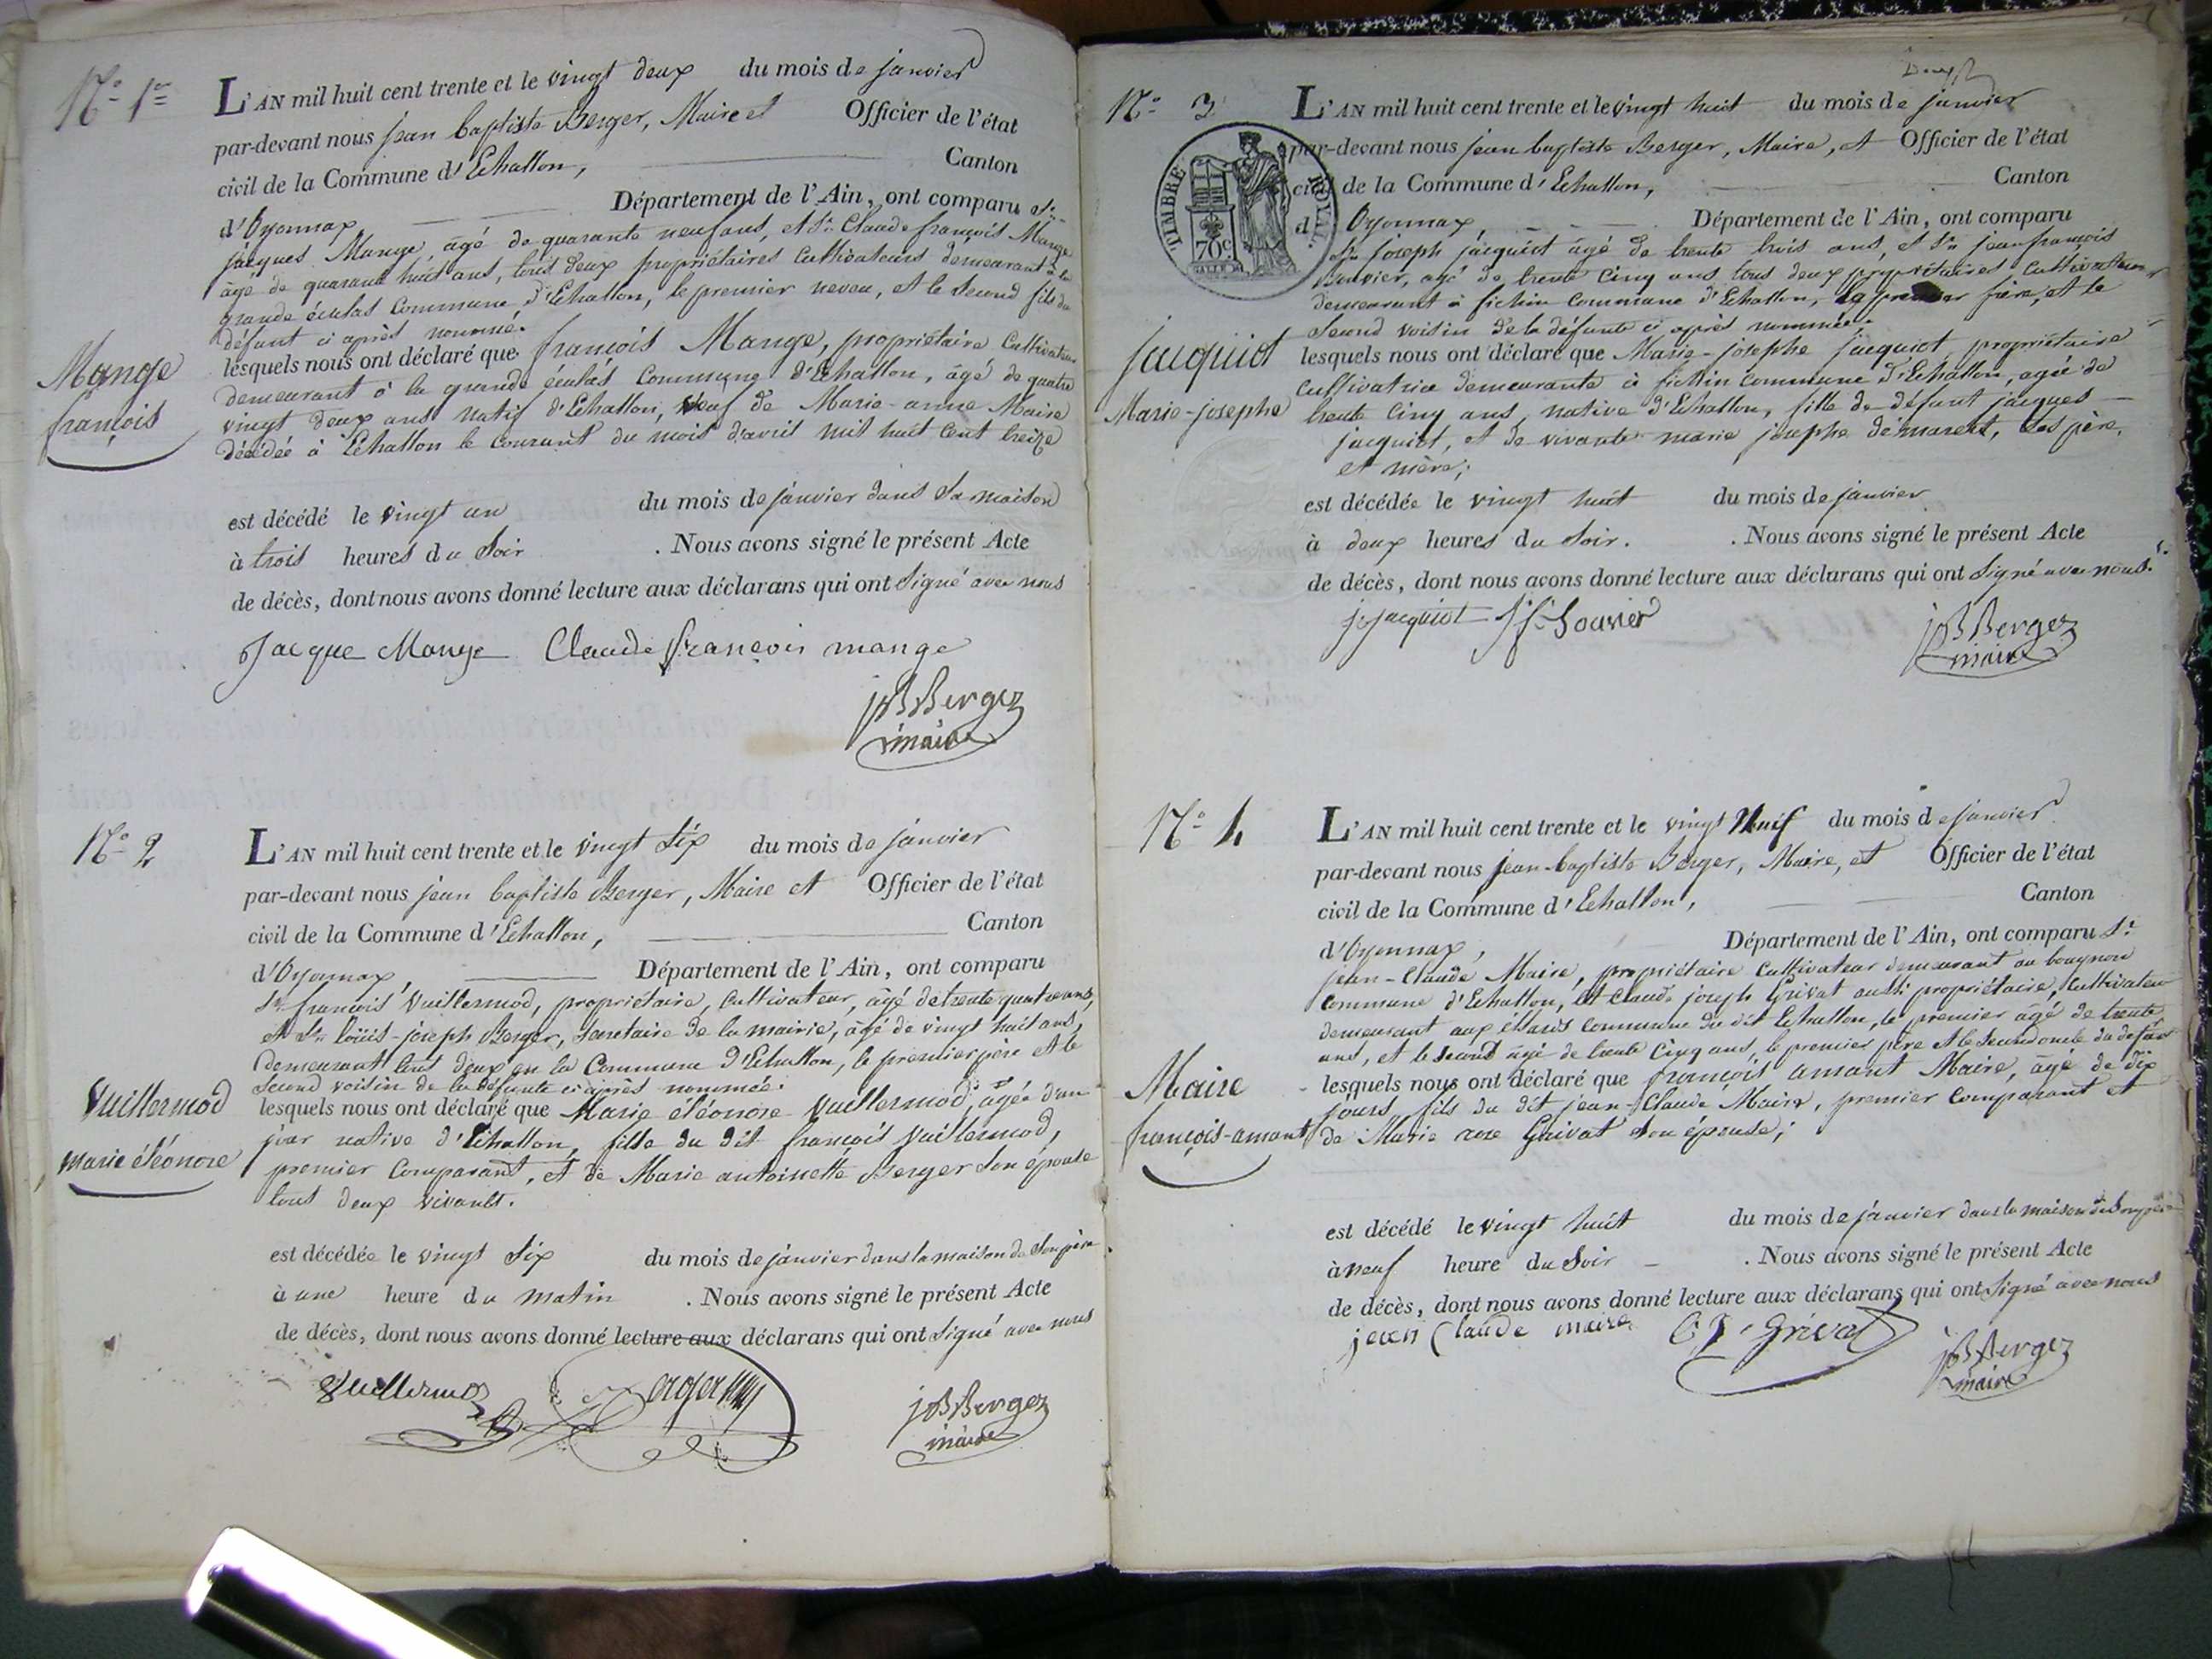 N.o 1er
L'AN mil huit cent trente et le vingt deux du mois de janvier
par-devant nous jean baptiste Berger, Maire et Officier de l'état
civil de la Commune d'Echallon, Canton
d'Oyonnax Département de l'Ain, ont comparu Sr.
jacques Mange, âgé de quarante neuf ans, et Sr. Claude françois Mange
âgé de quarante huit ans, tous deux propriétaires Cultivateurs demeurant à la
grande éculas Commune d'Echallon, le premier neveu, et le Second fils du
défunt ci après nommé.
Mange
françois
lesquels nous ont déclaré que françois Mange, propriétaire Cultivateur
demeurant à la grande éculas Commune d'Echallon, âgé de quatre
vingt deux ans natif d'Echallon, veuf de Marie-anne Maire
décédée à Echallon le Courant du mois d'avril mil huit Cent treize
est décédé le vingt un du mois de janvier dans Sa maison
à trois heures du Soir . Nous avons signé le présent Acte
de décès, dont nous avons donné lecture aux déclarans qui ont Signé avec nous
Jacque Mange Claude françois mange
jB Berger
maire
N.o 2
L'AN mil huit cent trente et le vingt Six du mois de janvier
par-devant nous jean baptiste Berger, Maire et Officier de l'état
civil de la Commune d'Echallon, Canton
d'Oyonnax, Département de l'Ain, ont comparu
Sr. françois Vuillermod, propriétaire, Cultivateur, âgé de trente quatre ans,
et Sr. Loüis-joseph Berger, Secretaire de la mairie, âgé de vingt huit ans,
demeurant tous deux en la Commune d'Echallon, le premier père et le
Second voisin de la défunte ci après nommée.
Vuillermod
Marie éléonore
lesquels nous ont déclaré que Marie éléonore Vuillermod, âgée d'un
jour native d'Echallon, fille du dit françois Vuillermod,
premier Comparant, et de Marie antoinette Berger Son épouse
tous deux vivants.
est décédée le vingt Six du mois de janvier dans la maison de Son père
à une heure du matin . Nous avons signé le présent Acte
de décès, dont nous avons donné lecture aux déclarans qui ont Signé avec nous
Vuillermoz Berger
jB Berger
maire
N.o 3
L'AN mil huit cent trente et le vingt huit du mois de janvier
TIMBRE ROYAL
70c
par-devant nous jean baptiste Berger, Maire, et Officier de l'état
civil de la Commune d'Echallon, Canton
d'Oyonnax, Département de l'Ain, ont comparu
Sr. joseph jacquiot âgé de trente trois ans, et Sr. jean françois
Bouvier, agé de trente Cinq ans, tous deux propriétaires Cultivateurs
demeurant à fichin Commune d'Echallon, Le premier frère, et le
Second voisin de la défunte ci après nommée.
jacquiot
Marie-josephe
lesquels nous ont déclaré que Marie-josephe jacquiot propriétaire
Cultivatrice demeurante à fichin Commune d'Echallon, agée de
trente Cinq ans, native d'Echallon, fille de défunt jacques
jacquiot, et de vivante marie josephe demarest, Ses père,
et mère;
est décédée le vingt huit du mois de janvier
à deux heures du Soir. . Nous avons signé le présent Acte
de décès, dont nous avons donné lecture aux déclarans qui ont Signé avec nous.
j. jacquiot jf Bouvier
jB Berger
maire
N.o 4
L'AN mil huit cent trente et le vingt Neuf du mois de janvier
par-devant nous jean-baptiste Berger, Maire, et Officier de l'état
civil de la Commune d'Echallon, Canton
d'Oyonnax, Département de l'Ain, ont comparu Sr.
jean-Claude Maire, propriétaire Cultivateur demeurant au bougnon
Commune d'Echallon, et Claude joseph Grivat aussi propriétaire, Cultivateur
demeurant aux éssards Commune du dit Echallon, le premier âgé de trente
ans, et le Second âgé de trente Cinq ans, le premier père et le Second oncle du défunt
Maire
françois-amant
lesquels nous ont déclaré que françois amant Maire, âgé de dix
jours fils du dit jean-Claude Maire, premier Comparant et
de Marie rose Grivat Son épouse;
est décédé le vingt huit du mois de janvier dans la maison de Son père
à neuf heure du Soir . Nous avons signé le présent Acte
de décès, dont nous avons donné lecture aux déclarans qui ont Signé avec nous
jean Claude maire C J Grivat
jB Berger
maire